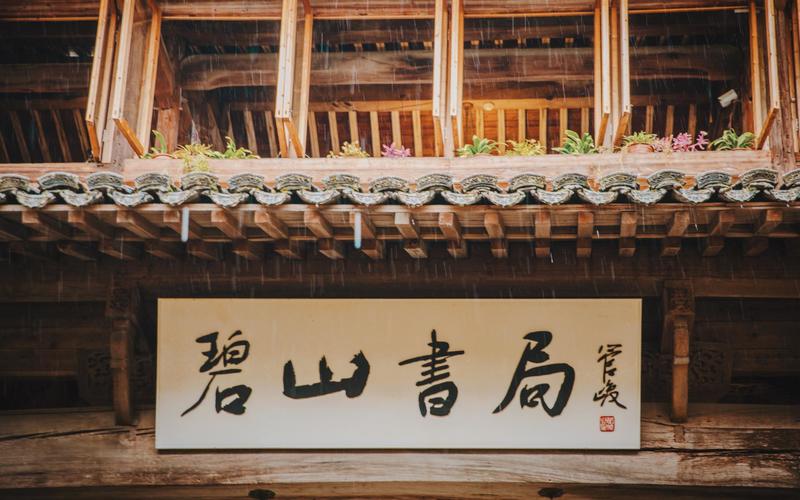 碧山書局
管峻